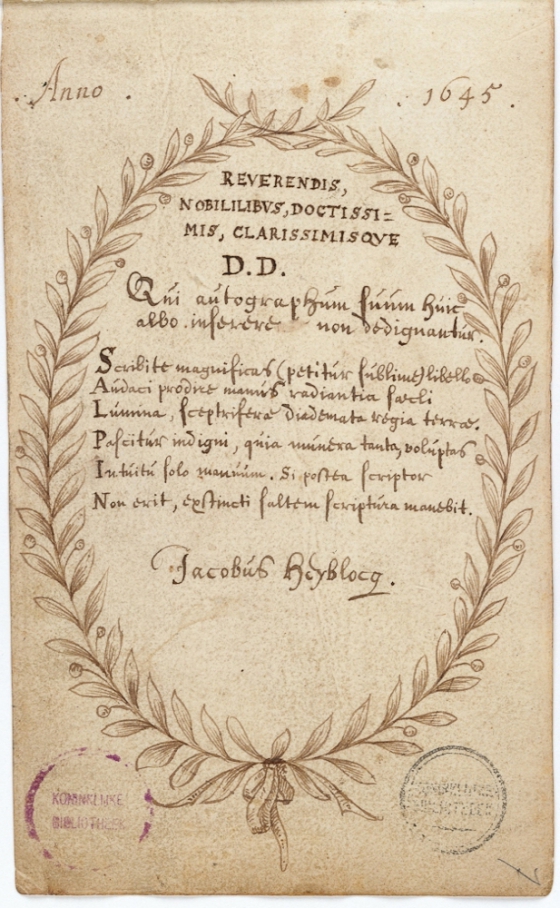 Anno . 1645.
REVERENDIS,
NOBILILIBVS, DOCTISSI=
MIS, CLARISSIMISQVE
D.D.
Qui autographum suum huic
albo inserere non dedignantur.
Scribite magnificas (petitur sublime) libello
Audaci prodire manus radiantia saecli
Lumina, sceptriferae diademata regia terrae.
Pascitur indigni, quia munera tanta, voluptas
Intuitu solo manuum. Si postea scriptor
Non erit, exstincti saltem scriptura manebit.
Jacobus Heyblocq.
KONINKLIJKE
BIBLIOTHEEK
KONINKLIJKE
BIBLIOTHEEK